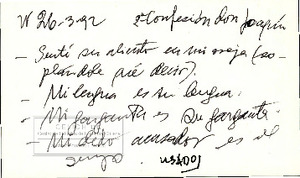 W 26-3-92 2ª Confesión don Joaquín
– Sentí su aliento en mi oreja (so-
plándole qué decir).
– Mi lengua es su lengua.
– Mi garganta es su garganta.
– Mi dedo acusador es el
suyo.